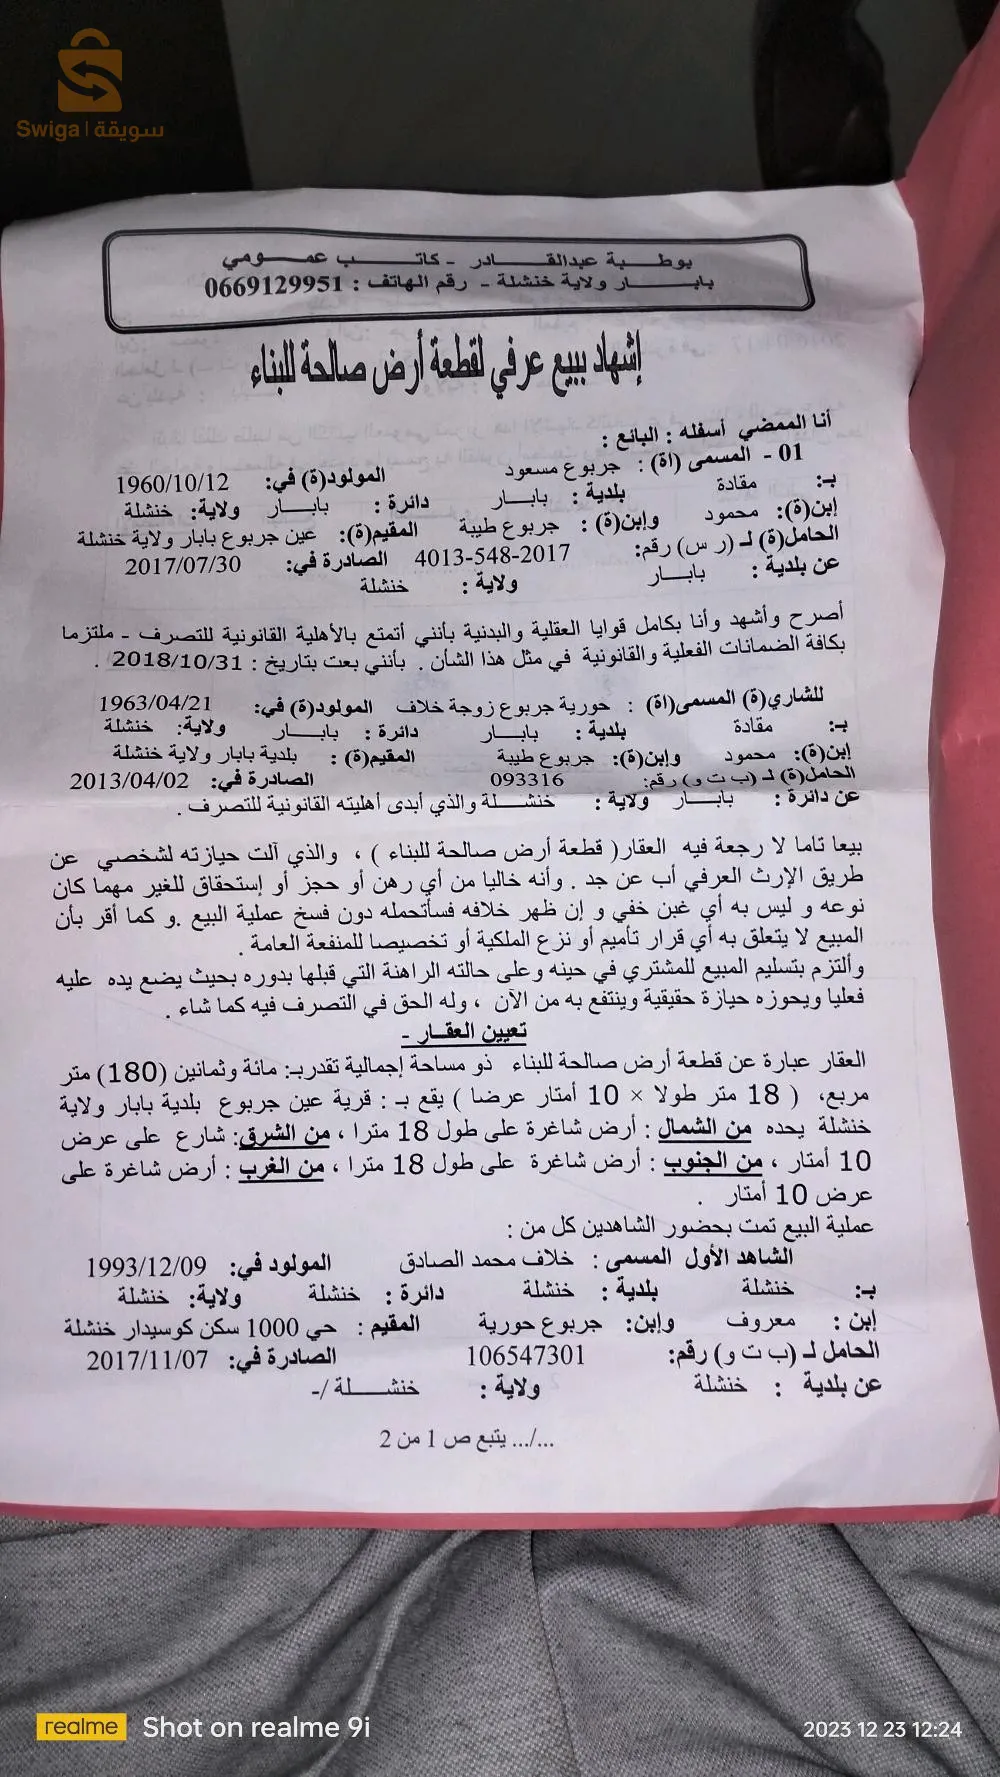 Swiga | سويقة
بوطبة عبدالقادر - كاتب عمومي
بابار ولاية خنشلة - رقم الهاتف : 0669129951
إشهاد ببيع عرفي لقطعة أرض صالحة للبناء
أنا الممضي أسفله : البائع :
01 - المسمى (اة) : جربوع مسعود المولود(ة) في: 1960/10/12
بـ: مقادة بلدية : بابار دائرة : بابار ولاية: خنشلة
إبن(ة): محمود وإبن(ة) : جربوع طيبة المقيم(ة): عين جربوع بابار ولاية خنشلة
الحامل(ة) لـ (ر س) رقم: 2017-548-4013 الصادرة في: 2017/07/30
عن بلدية : بابار ولاية : خنشلة
أصرح وأشهد وأنا بكامل قوايا العقلية والبدنية بأنني أتمتع بالأهلية القانونية للتصرف - ملتزما
بكافة الضمانات الفعلية والقانونية في مثل هذا الشأن . بأنني بعت بتاريخ : 2018/10/31 .
للشاري(ة) المسمى(اة) : حورية جربوع زوجة خلاف المولود(ة) في: 1963/04/21
بـ: مقادة بلدية : بابار دائرة : بابار ولاية: خنشلة
إبن(ة): محمود وإبن(ة): جربوع طيبة المقيم(ة) : بلدية بابار ولاية خنشلة
الحامل(ة) لـ (ب ت و) رقم: 093316 الصادرة في: 2013/04/02
عن دائرة : بابار ولاية : خنشلة والذي أبدى أهليته القانونية للتصرف .
بيعا تاما لا رجعة فيه العقار( قطعة أرض صالحة للبناء ) ، والذي آلت حيازته لشخصي عن
طريق الإرث العرفي أب عن جد . وأنه خاليا من أي رهن أو حجز أو إستحقاق للغير مهما كان
نوعه و ليس به أي غبن خفي و إن ظهر خلافه فسأتحمله دون فسخ عملية البيع .و كما أقر بأن
المبيع لا يتعلق به أي قرار تأميم أو نزع الملكية أو تخصيصا للمنفعة العامة .
وألتزم بتسليم المبيع للمشتري في حينه وعلى حالته الراهنة التي قبلها بدوره بحيث يضع يده عليه
فعليا ويحوزه حيازة حقيقية وينتفع به من الآن ، وله الحق في التصرف فيه كما شاء .
تعيين العقار -
العقار عبارة عن قطعة أرض صالحة للبناء ذو مساحة إجمالية تقدربـ: مائة وثمانين (180) متر
مربع، ( 18 متر طولا × 10 أمتار عرضا ) يقع بـ : قرية عين جربوع بلدية بابار ولاية
خنشلة يحده من الشمال : أرض شاغرة على طول 18 مترا ، من الشرق: شارع على عرض
10 أمتار ، من الجنوب : أرض شاغرة على طول 18 مترا ، من الغرب : أرض شاغرة على
عرض 10 أمتار .
عملية البيع تمت بحضور الشاهدين كل من :
الشاهد الأول المسمى : خلاف محمد الصادق المولود في: 1993/12/09
بـ: خنشلة بلدية : خنشلة دائرة : خنشلة ولاية: خنشلة
إبن : معروف وإبن: جربوع حورية المقيم : حي 1000 سكن كوسيدار خنشلة
الحامل لـ (ب ت و) رقم: 106547301 الصادرة في: 2017/11/07
عن بلدية : خنشلة ولاية : خنشلة /-
.../... يتبع ص 1 من 2
realme Shot on realme 9i
2023 12 23 12:24